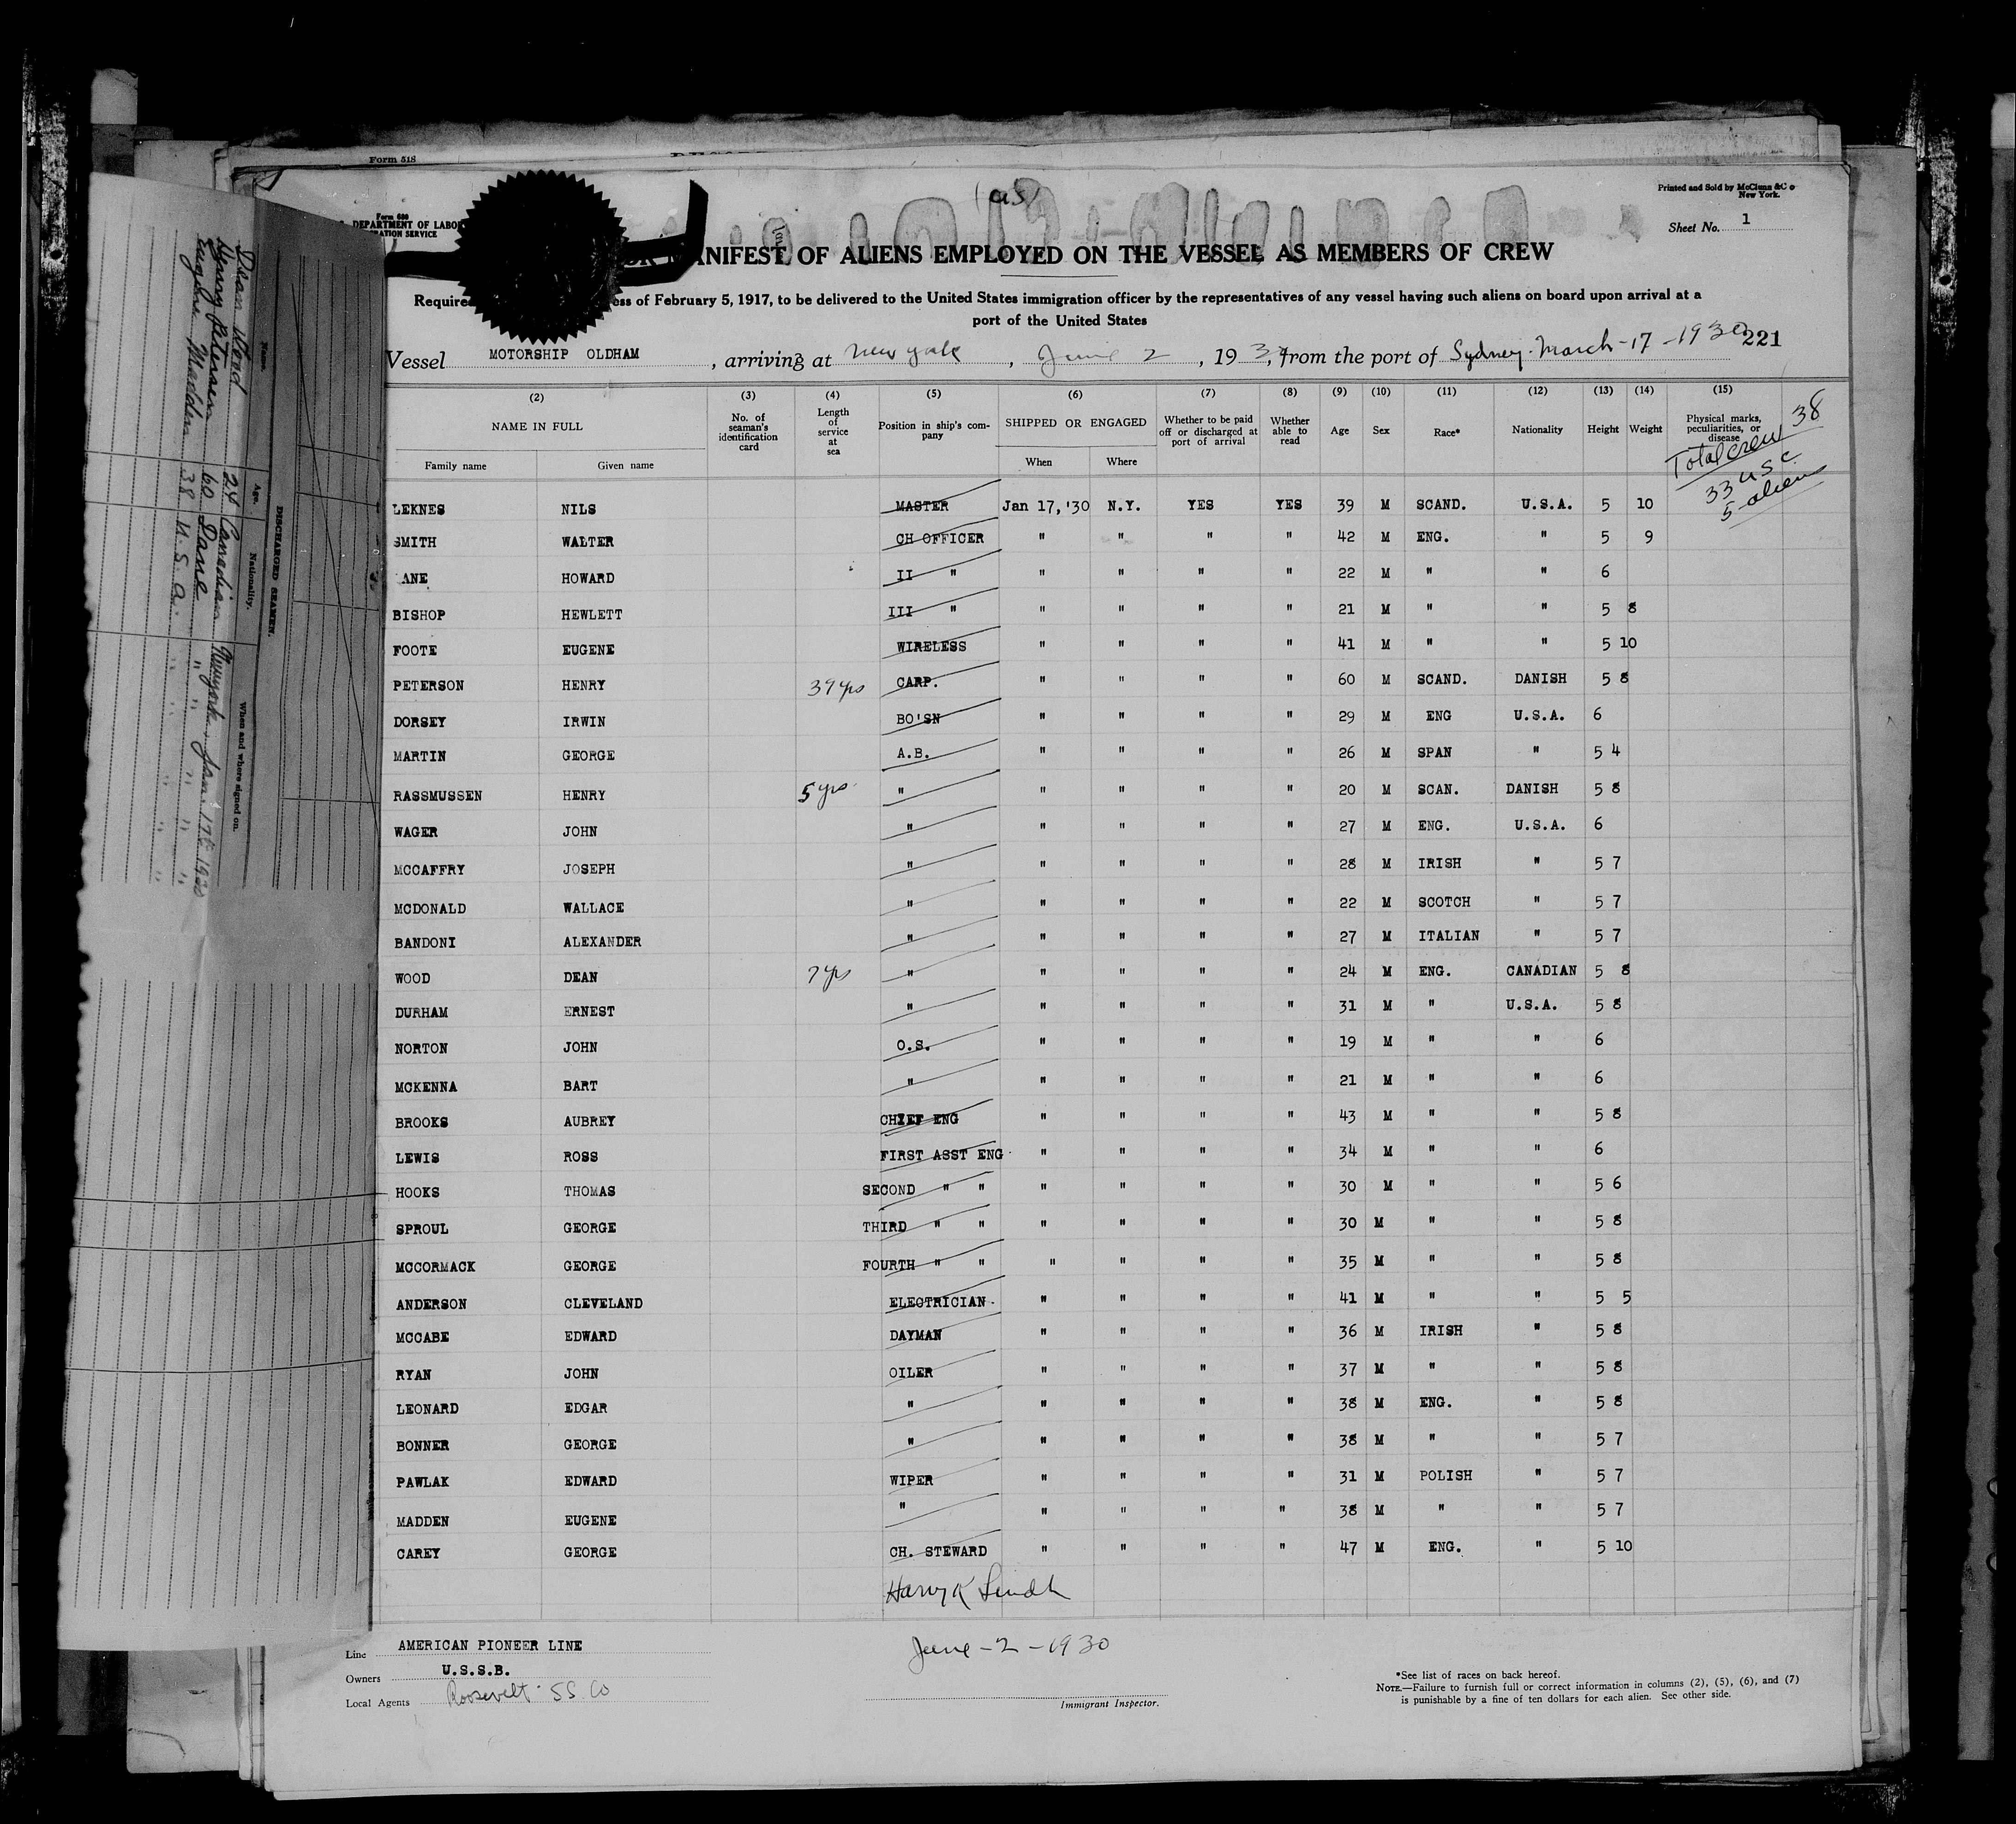 Form 518
(us)
Printed and Sold by McClunn & Co
New York.
Form 680
DEPARTMENT OF LABOR
Sheet No. 1
MANIFEST OF ALIENS EMPLOYED ON THE VESSEL AS MEMBERS OF CREW
of February 5, 1917, to be delivered to the United States immigration officer by the representatives of any vessel having such aliens on board upon arrival at a
port of the United States
Vessel MOTORSHIP OLDHAM , arriving at New York , June 2 , 193 , from the port of Sydney. March-17-1930 221
(2) (3) (4) (5) (6) (7) (8) (9) (10) (11) (12) (13) (14) (15)
NAME IN FULL No. of seaman's identification card Length of service at sea Position in ship's company SHIPPED OR ENGAGED Whether to be paid off or discharged at port of arrival Whether able to read Age Sex Race* Nationality Height Weight Physical marks, peculiarities, or disease
Family name Given name When Where
Total crew 38
33 USC
5 aliens
LEKNES NILS MASTER Jan 17, '30 N.Y. YES YES 39 M SCAND. U.S.A. 5 10
SMITH WALTER CH OFFICER " " " " 42 M ENG. " 5 9
ANE HOWARD II " " " " " 22 M " " 6
BISHOP HEWLETT III " " " " " 21 M " " 5 8
FOOTE EUGENE WIRELESS " " " " 41 M " " 5 10
PETERSON HENRY 39 yrs CARP. " " " " 60 M SCAND. DANISH 5 8
DORSEY IRWIN BO'SN " " " " 29 M ENG U.S.A. 6
MARTIN GEORGE A.B. " " " " 26 M SPAN " 5 4
RASSMUSSEN HENRY 5 yrs " " " " " 20 M SCAN. DANISH 5 8
WAGER JOHN " " " " " 27 M ENG. U.S.A. 6
MCCAFFRY JOSEPH " " " " " 28 M IRISH " 5 7
MCDONALD WALLACE " " " " " 22 M SCOTCH " 5 7
BANDONI ALEXANDER " " " " " 27 M ITALIAN " 5 7
WOOD DEAN 7 yrs " " " " " 24 M ENG. CANADIAN 5 8
DURHAM ERNEST " " " " " 31 M " U.S.A. 5 8
NORTON JOHN O.S. " " " " 19 M " " 6
MCKENNA BART " " " " " 21 M " " 6
BROOKS AUBREY CHIEF ENG " " " " 43 M " " 5 8
LEWIS ROSS FIRST ASST ENG " " " " 34 M " " 6
HOOKS THOMAS SECOND " " " " " " 30 M " " 5 6
SPROUL GEORGE THIRD " " " " " " 30 M " " 5 8
MCCORMACK GEORGE FOURTH " " " " " " 35 M " " 5 8
ANDERSON CLEVELAND ELECTRICIAN " " " " 41 M " " 5 5
MCCABE EDWARD DAYMAN " " " " 36 M IRISH " 5 8
RYAN JOHN OILER " " " " 37 M " " 5 8
LEONARD EDGAR " " " " " 38 M ENG. " 5 8
BONNER GEORGE " " " " " 38 M " " 5 7
PAWLAK EDWARD WIPER " " " " 31 M POLISH " 5 7
MADDEN EUGENE " " " " " 38 M " " 5 7
CAREY GEORGE CH. STEWARD " " " " 47 M ENG. " 5 10
Harry K Lindh
Line AMERICAN PIONEER LINE
Owners U.S.S.B.
Local Agents Roosevelt SS Co
June-2-1930
Immigrant Inspector.
*See list of races on back hereof.
NOTE.—Failure to furnish full or correct information in columns (2), (5), (6), and (7)
is punishable by a fine of ten dollars for each alien. See other side.
DISCHARGED SEAMEN.
Name. Age. Nationality. When and where signed on.
Dean Wood 24 Canadian New York Jan. 17th 1930
Henry Petersen 60 Dane " " " "
Eugene Madden 38 U.S.A. " " " "